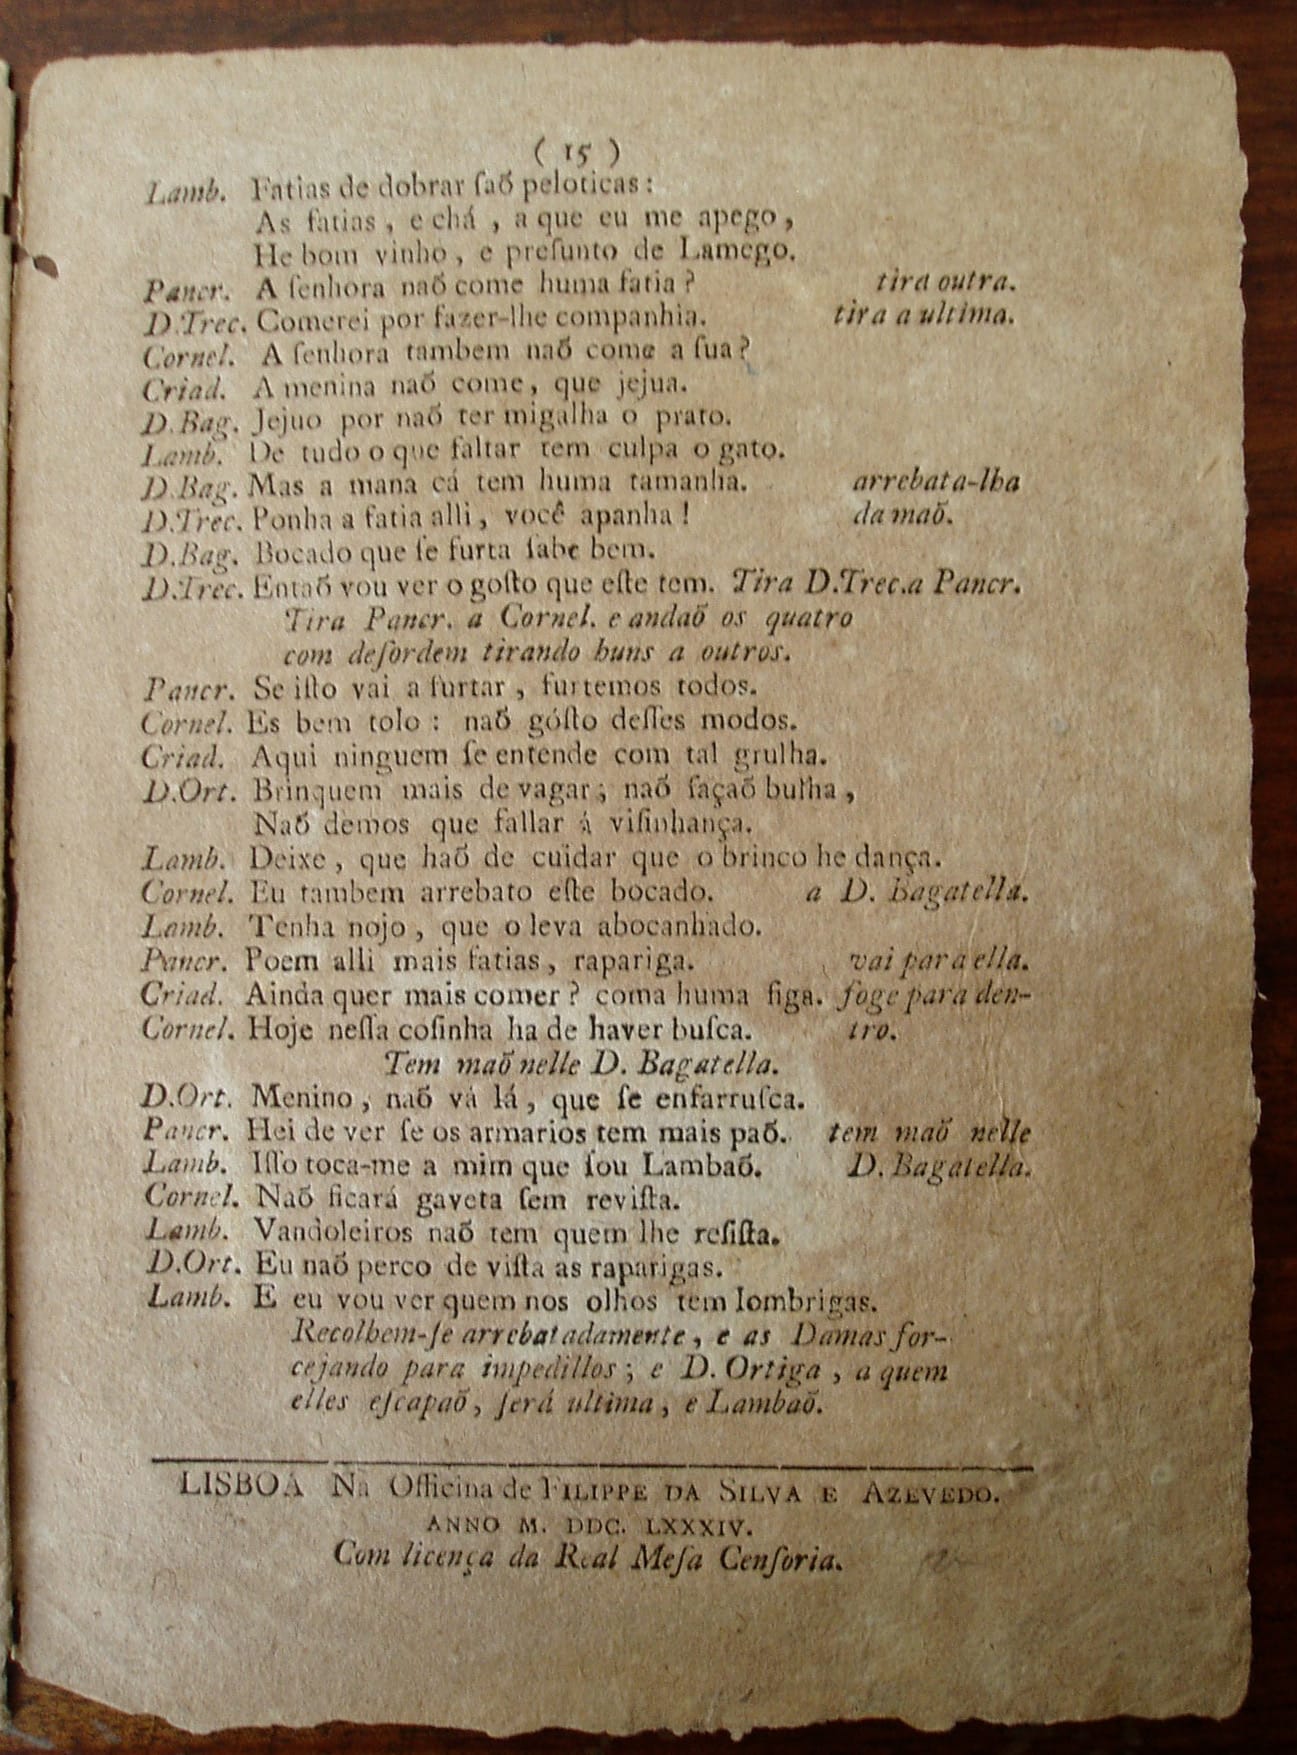 ( 15 )
Lamb. Fatias de dobrar ſaõ peloticas:
As fatias, e chá, a que eu me apego,
He bom vinho, e preſunto de Lamego.
Pancr. A ſenhora naõ come huma fatia? tira outra.
D.Trec. Comerei por fazer-lhe companhia. tira a ultima.
Cornel. A ſenhora tambem naõ come a ſua?
Criad. A menina naõ come, que jejua.
D.Bag. Jejuo por naõ ter migalha o prato.
Lamb. De tudo o que faltar tem culpa o gato.
D.Bag. Mas a mana cá tem huma tamanha. arrebata-lha
D.Trec. Ponha a fatia alli, você apanha! da maõ.
D.Bag. Bocado que ſe furta ſabe bem.
D.Trec. Entaõ vou ver o goſto que eſte tem. Tira D.Trec.a Pancr.
Tira Pancr. a Cornel. e andaõ os quatro
com deſordem tirando huns a outros.
Pancr. Se iſto vai a furtar, furtemos todos.
Cornel. Es bem tolo: naõ góſto deſſes modos.
Criad. Aqui ninguem ſe entende com tal grulha.
D.Ort. Brinquem mais de vagar; naõ façaõ bulha,
Naõ demos que fallar á viſinhança.
Lamb. Deixe, que haõ de cuidar que o brinco he dança.
Cornel. Eu tambem arrebato eſte bocado. a D. Bagatella.
Lamb. Tenha nojo, que o leva abocanhado.
Pancr. Poem alli mais fatias, rapariga. vai para ella.
Criad. Ainda quer mais comer? coma huma figa. foge para den-
Cornel. Hoje neſſa coſinha ha de haver buſca. tro.
Tem maõ nelle D. Bagatella.
D.Ort. Menino, naõ vá lá, que ſe enfarruſca.
Pancr. Hei de ver ſe os armarios tem mais paõ. tem maõ nelle
Lamb. Iſſo toca-me a mim que ſou Lambaõ. D. Bagatella.
Cornel. Naõ ficará gaveta ſem reviſta.
Lamb. Vandoleiros naõ tem quem lhe reſiſta.
D.Ort. Eu naõ perco de viſta as raparigas.
Lamb. E eu vou ver quem nos olhos tem lombrigas.
Recolhem-ſe arrebatadamente, e as Damas for-
cejando para impedillos; e D. Ortiga, a quem
elles eſcapaõ, ſerá ultima, e Lambaõ.
LISBOA Na Officina de FILIPPE DA SILVA E AZEVEDO.
ANNO M. DDC. LXXXIV.
Com licença da Real Meſa Cenſoria.